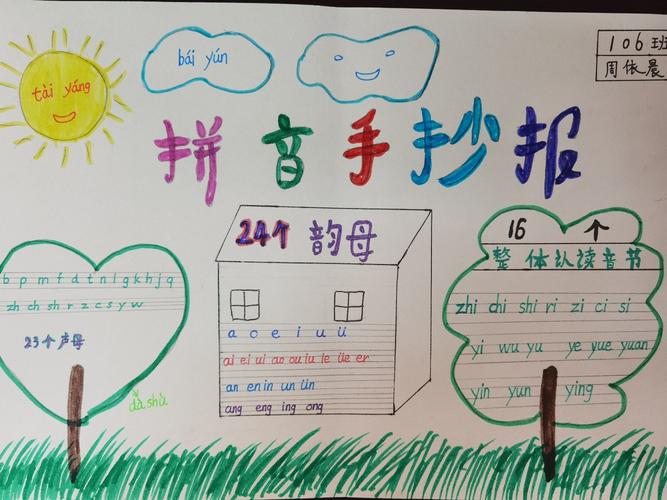 106班
周依晨
tài yáng
bái yún
拼音手抄报
b p m f d t n l g k h j q
zh ch sh r z c s y w
23个声母
dà shù
24个 韵母
a o e i u ü
ai ei ui ao ou iu ie üe er
an en in un ün
ang eng ing ong
16 个
整体认读音节
zhi chi shi ri zi ci si
yi wu yu ye yue yuan
yin yun ying